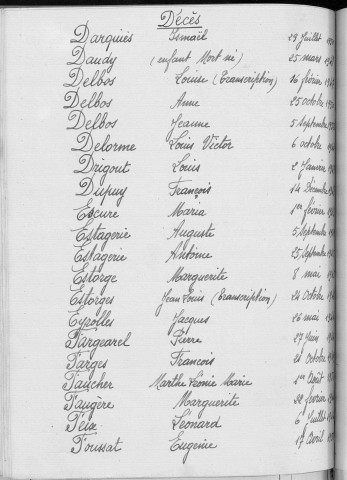 Décès
Darquiés Ismaël 29 Juillet
Daudy (enfant Mort né) 25 mars
Delbos Louise (transcription) 16 février
Delbos Anne 25 octobre
Delbos Jeanne 5 Septembre
Delorme Louis Victor 6 octobre
Drigout Louis 2 Janvier
Dupuy François 14 Décembre
Escure Maria 1er février
Estagerie Auguste 5 Septembre
Estagerie Antoine 25 Septembre
Estorge Marguerite 8 mai
Estorges Jean Louis (transcription) 24 Octobre
Eyrolles Jacques 26 mai
Fargearel Pierre 27 Juin
Farges François 21 octobre
Faucher Marthe Léonie Marie 1er Août
Faugère Marguerite 22 février
Feix Léonard 6 Juillet
Foussat Eugénie 17 avril